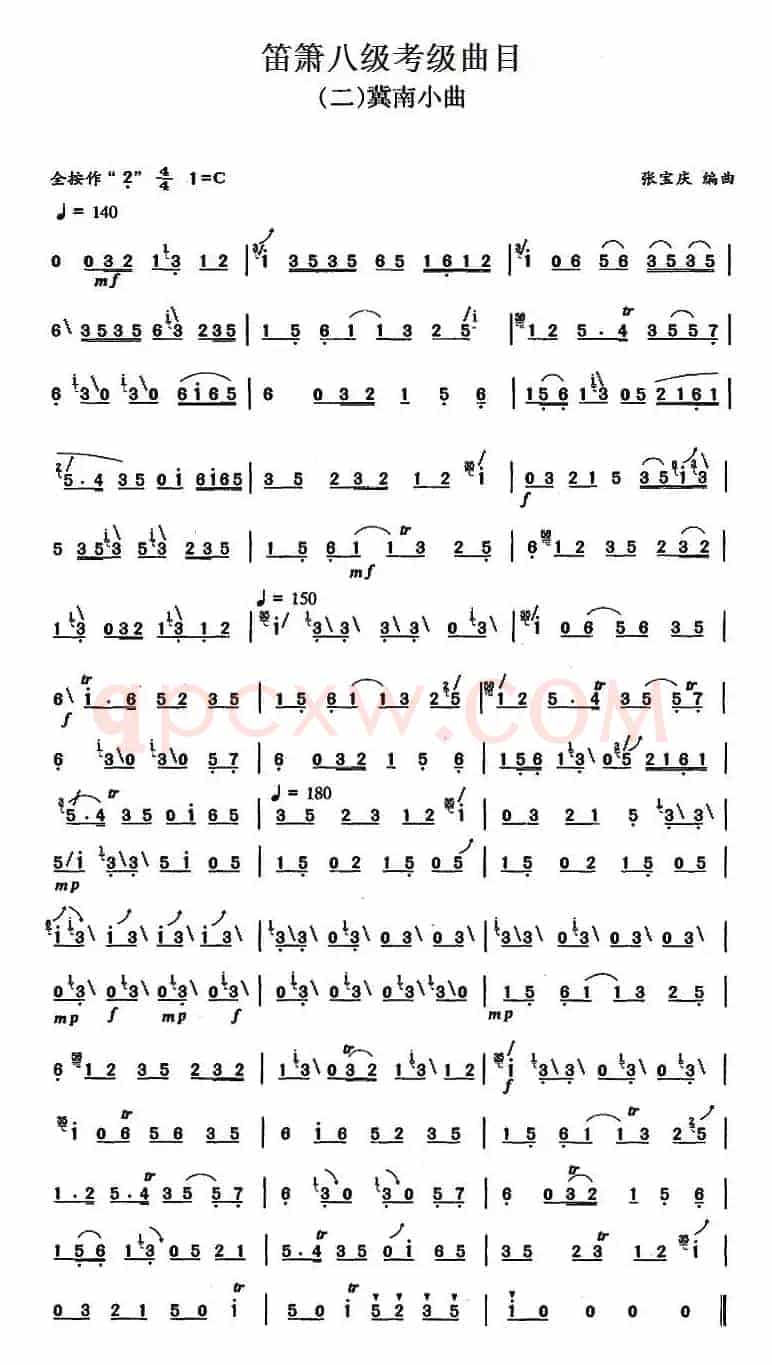 笛箫八级考级曲目
(二)冀南小曲
全按作“2” 4/4 1=C 张宝庆 编曲
♩= 140
0 032 13 12 | i 3535 65 1612 | i 06 56 3535 |
mf
6 3535 63 235 | 15 61 13 25 | 12 5·4 35 57 |
6 30 30 6i65 | 6 032 1 5 6 | 156 13 05 2161 |
5·4 35 0i 6i65 | 35 232 12 i | 03 21 5 35i3 |
f
5 353 53 235 | 15 61 13 25 | 6 12 35 232 |
tr
mf
♩= 150
13 032 13 12 | i 33 33 03 | i 06 56 35 |
6 i·6 52 35 | 15 61 13 25 | 12 5·4 35 57 |
f
qpcxw.COM
6 30 30 57 | 6 032 1 5 6 | 156 13 05 2161 |
♩= 180
5·4 35 0i 65 | 35 23 12 i | 03 21 5 33 |
5i 33 5i 05 | 15 02 15 05 | 15 02 15 05 |
mp
i3 i3 i3 i3 | 33 03 03 03 | 33 03 03 03 |
03 03 03 03 | 03 03 03 30 | 15 61 13 25 |
mp f mp f mp
6 12 35 232 | 13 032 13 12 | i 03 03 03 |
f
i 06 56 35 | 6 i6 52 35 | 15 61 13 25 |
1·2 5·4 35 57 | 6 30 30 57 | 6 032 1 5 6 |
156 13 05 21 | 5·4 35 0i 65 | 35 23 12 i |
03 21 50 i | 50 i 52 35 | i0 0 0 0 ‖